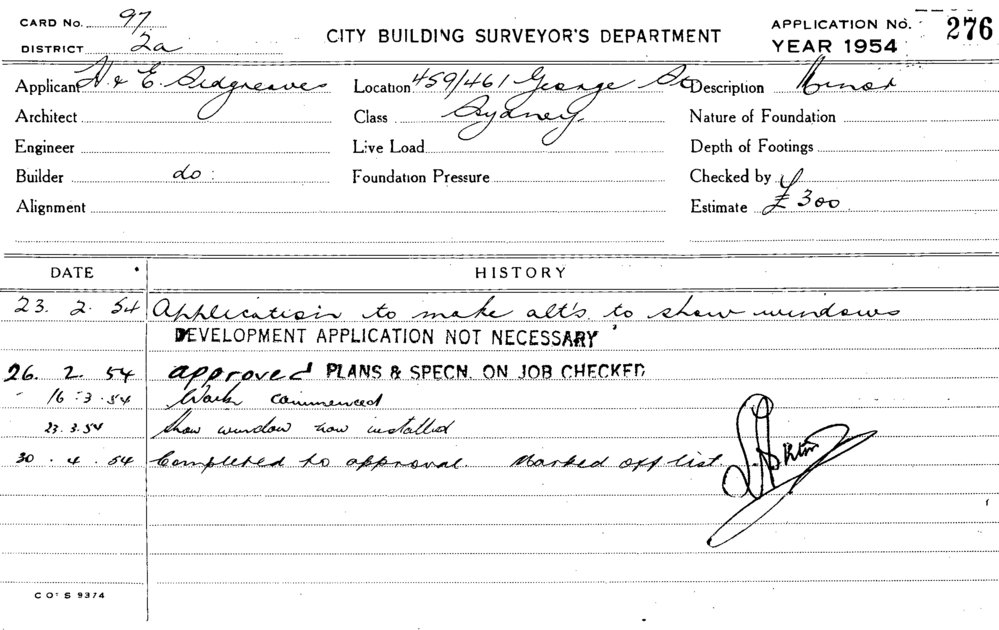 CARD No. 97
DISTRICT 2a
CITY BUILDING SURVEYOR'S DEPARTMENT
APPLICATION No. 276
YEAR 1954
Applicant H & E. Sidgreaves Location 459/461 George St Description Minor
Architect Class Sydney. Nature of Foundation
Engineer Live Load Depth of Footings
Builder do: Foundation Pressure Checked by
Alignment Estimate £300
DATE HISTORY
23. 2. 54 Application to make alt's. to show windows
DEVELOPMENT APPLICATION NOT NECESSARY
26. 2. 54 approved PLANS & SPECN. ON JOB CHECKED
16.3.54 Work commenced
23.3.54 Show window now installed
30.4.54 Completed to approval. Marked off list.
C OF S 9374